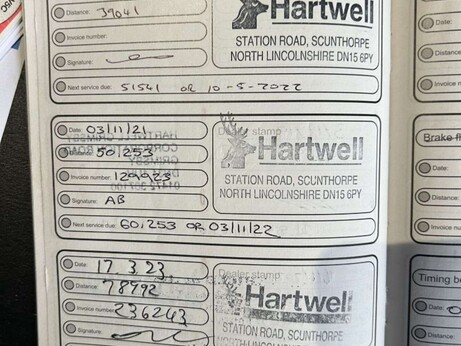 Distance: 39041
Invoice number:
Signature:
Hartwell
STATION ROAD, SCUNTHORPE
NORTH LINCOLNSHIRE DN15 6PY
Next service due: 51541 OR 10-5-2022
Date:
Distance:
Invoice n
Date: 03/11/21
Distance: 50,253
Invoice number: 129923
Signature: AB
Dealer stamp
Hartwell
STATION ROAD, SCUNTHORPE
NORTH LINCOLNSHIRE DN15 6PY
Next service due: 60,253 OR 03/11/22
Brake fl
Date:
Distance:
Invoice
Date: 17.3.23
Distance: 78992
Invoice number: 236243
Signature:
Dealer stamp
Hartwell
STATION ROAD, SCUNTHORPE
NORTH LINCOLNSHIRE DN15 6PY
Timing be
Date:
Distance:
Invoice n